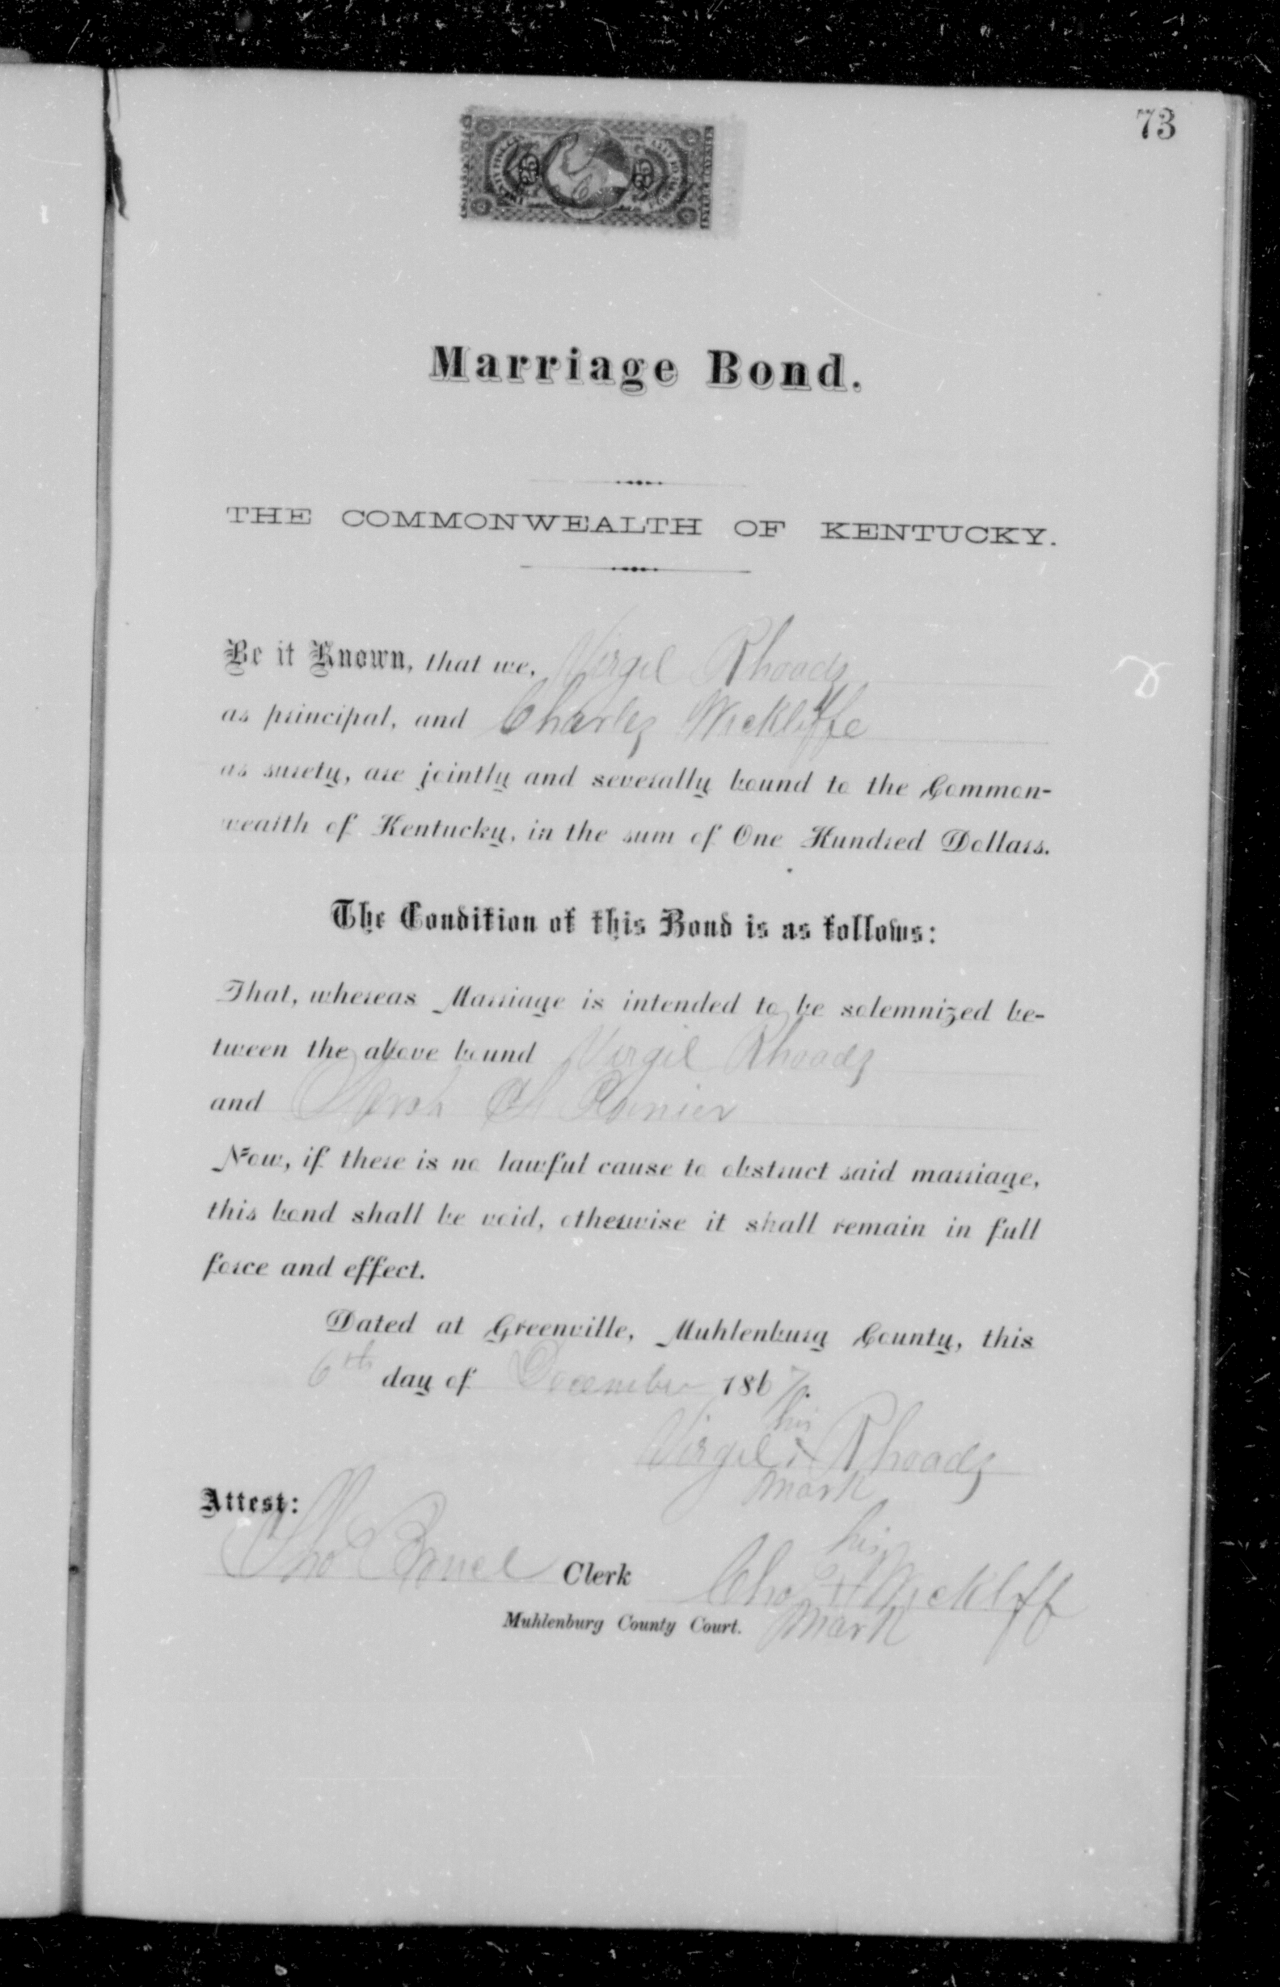 73
25 25
Marriage Bond.
THE COMMONWEALTH OF KENTUCKY.
Be it Known, that we, Virgil Rhoads
as principal, and Charles Wickliffe
as surety, are jointly and severally bound to the Common-
wealth of Kentucky, in the sum of One Hundred Dollars.
The Condition of this Bond is as follows:
That, whereas Marriage is intended to be solemnized be-
tween the above bound Virgil Rhoads
and Sarah
Now, if there is no lawful cause to obstruct said marriage,
this bond shall be void, otherwise it shall remain in full
force and effect.
Dated at Greenville, Muhlenburg County, this
6th day of December 1867.
his
Virgil x Rhoads
mark
Attest:
his
Tho Bruce Clerk Chas x Wickliff
Muhlenburg County Court. mark